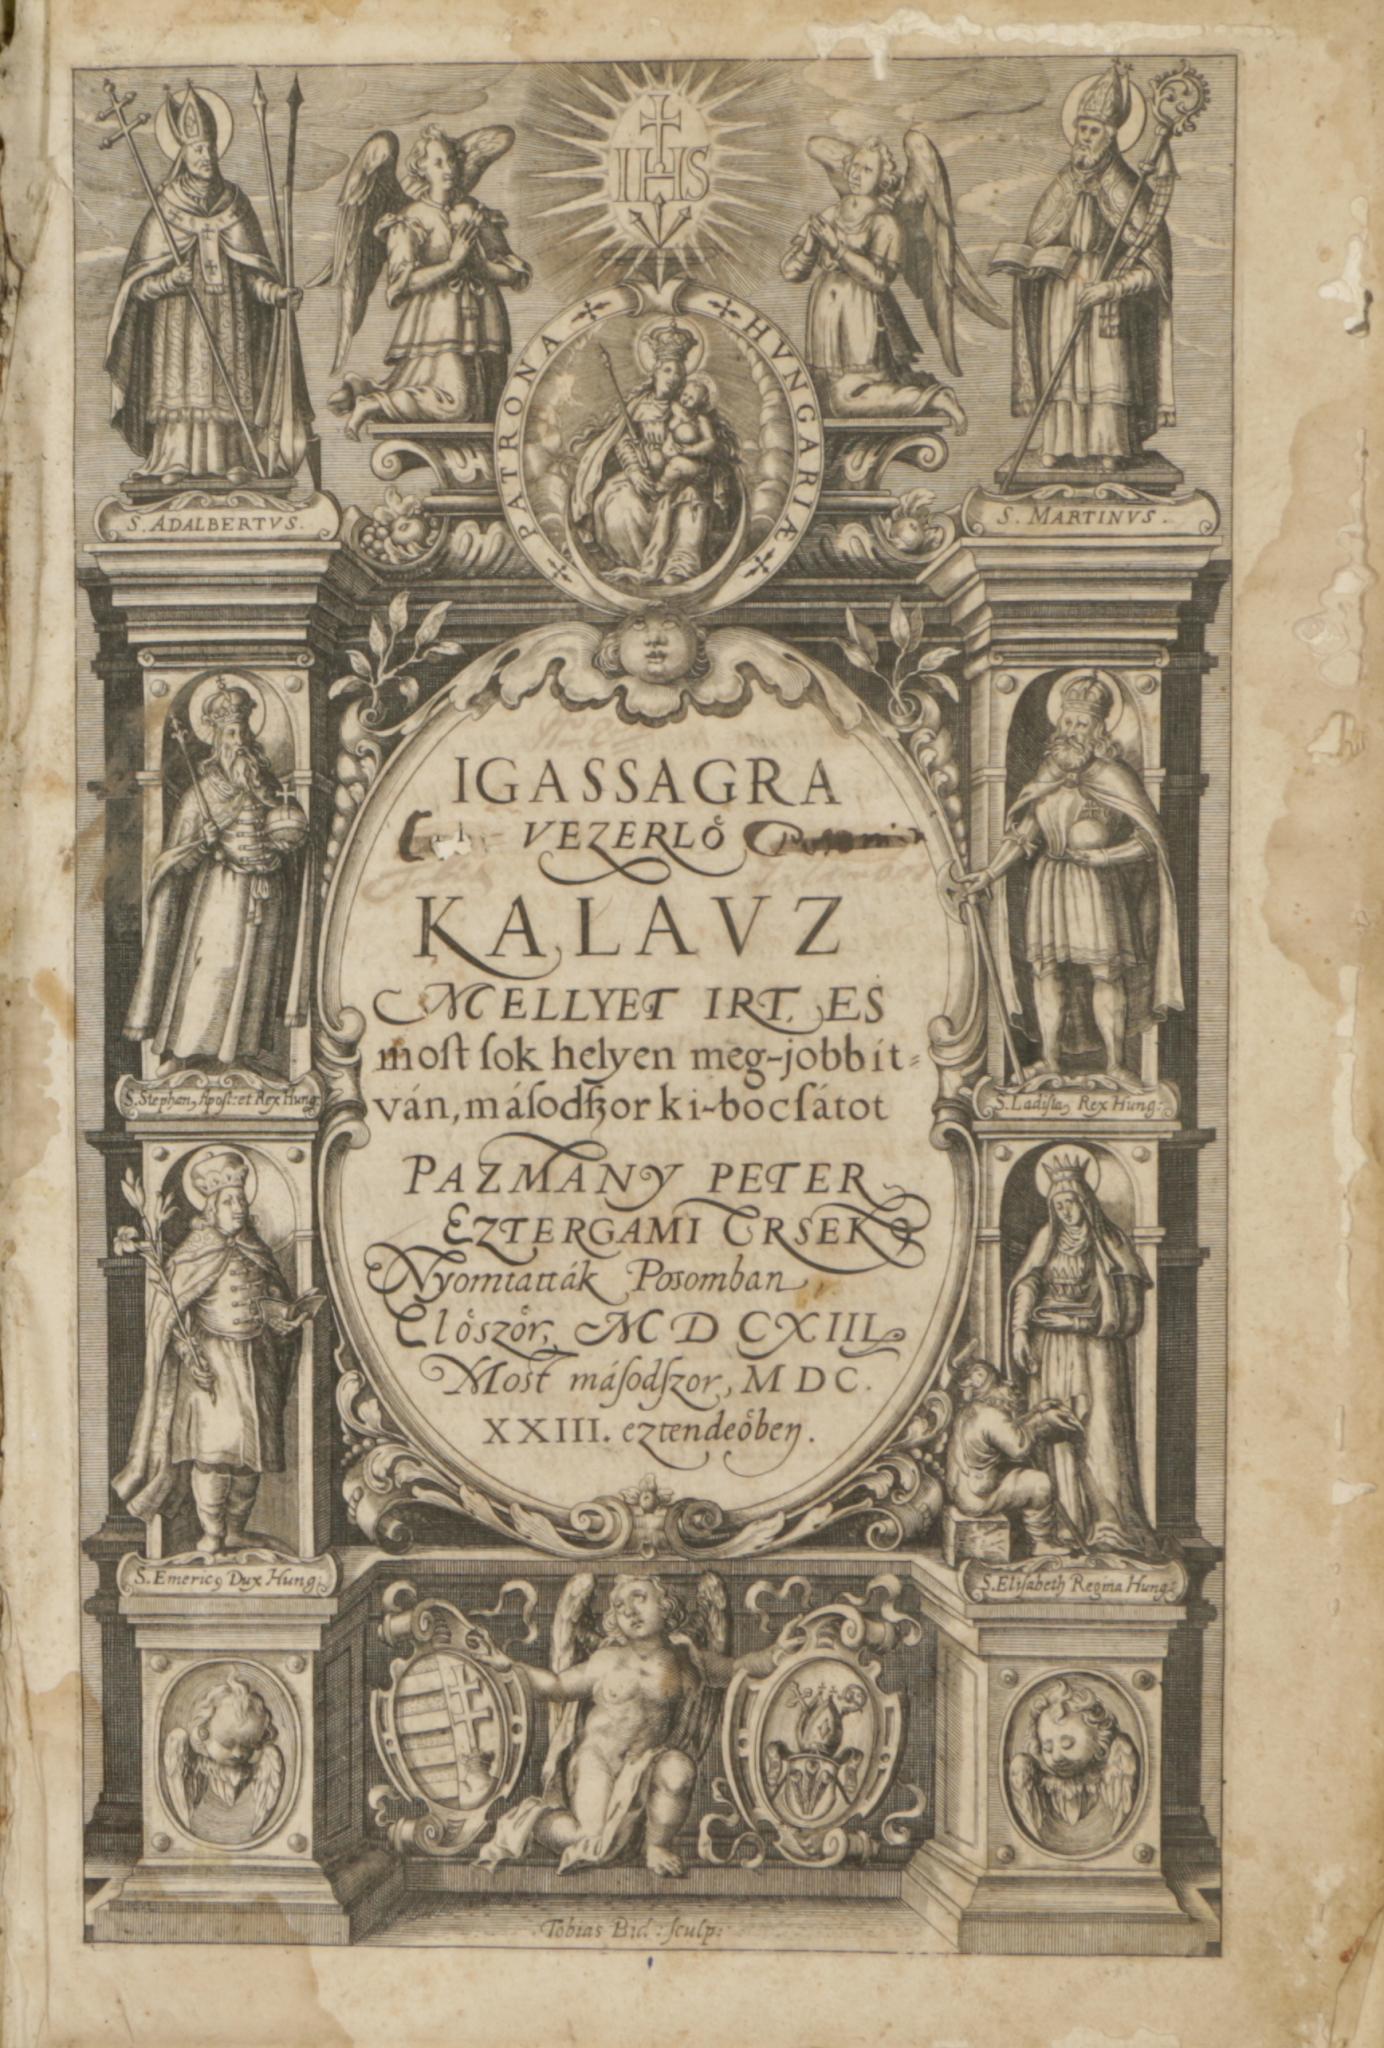 IHS
PATRONA HVNGARIÆ
S. ADALBERTVS.
S. MARTINVS.
IGASSAGRA
VEZERLŐ
KALAVZ
MELLYET IRT, ES
moſt ſok helyen meg-jobbít-
ván, máſodſzor ki-bocſátot
PAZMANY PETER
EZTERGAMI ERSEK,
Nyomtatták Posomban
Elöször, MDCXIII.
Most máſodſzor, MDC.
XXIII. eztendeöben.
S. Stephan, Apost: et Rex Hung:
S. Ladiſla, Rex Hung:
S. Emericꝰ Dux Hung:
S. Eliſabeth Regina Hung:
Tobias Bid: ſculp: